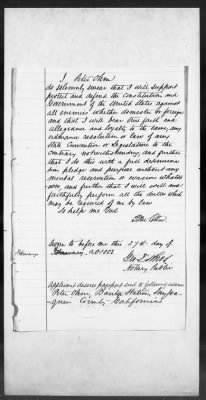 I Peter Ohm
do solemnly swear that I will support
protect and defend the Constitution and
Government of the United States against
all enemies whether domestic or foreign
and that I will bear true faith and
allegiance and loyalty to the same, any
ordinance resolution or law of any
State Convention or Legislature to the
contrary notwithstanding, and further
that I do this with a full determina-
tion pledge and purpose without any
mental reservation or evasion whatso-
ever, and further that I will well and
faithfully perform all the duties which
may be required of me by law
So help me God
Peter Ohm
Sworn to before me this 27th day of
February
Notary Public
Applicant desires passport sent to following address
Peter Ohm, Banta Station, San Joa-
quin County California